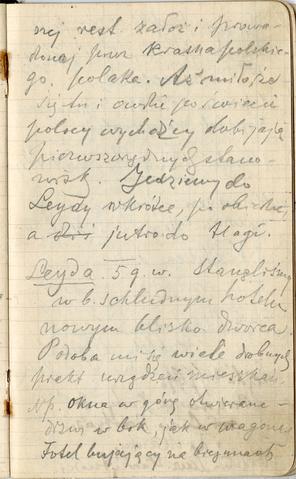 nej rest. założ i prowa-
dzonej przez Krasnapolskie-
go, polaka. Aż miło, że
się tu i ówdzie po świecie
polscy wychodźcy dobijają
pierwszorzędnych stano-
wisk. Jedziemy do
Leydy wkrótce, po obiedzie,
a dziś jutro do Hagi.
Leyda. 5 g. w. Stanęliśmy
w b. schludnym hotelu
nowym blisko dworca.
Podoba mi się wiele drobnych
prakt urządzeń mieszkań
Np. okna w górę otwierane -
drzwi w bok, jak w wagonie
Fotel bujający na biegunach